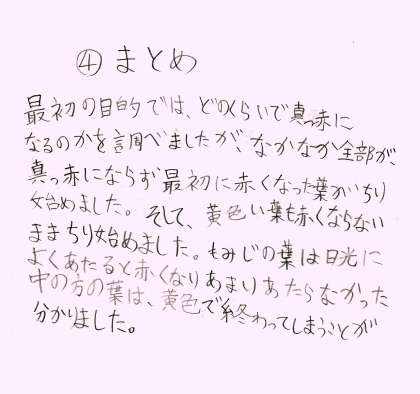 ④まとめ
最初の目的では、どのくらいで真っ赤に
なるのかを調べましたが、なかなか全部が、
真っ赤にならず最初に赤くなった葉がちり
始めました。そして、黄色い葉も赤くならない
ままちり始めました。もみじの葉は日光に
よくあたると赤くなりあまりあたらなかった
中の方の葉は、黄色で終わってしまうことが
分かりました。